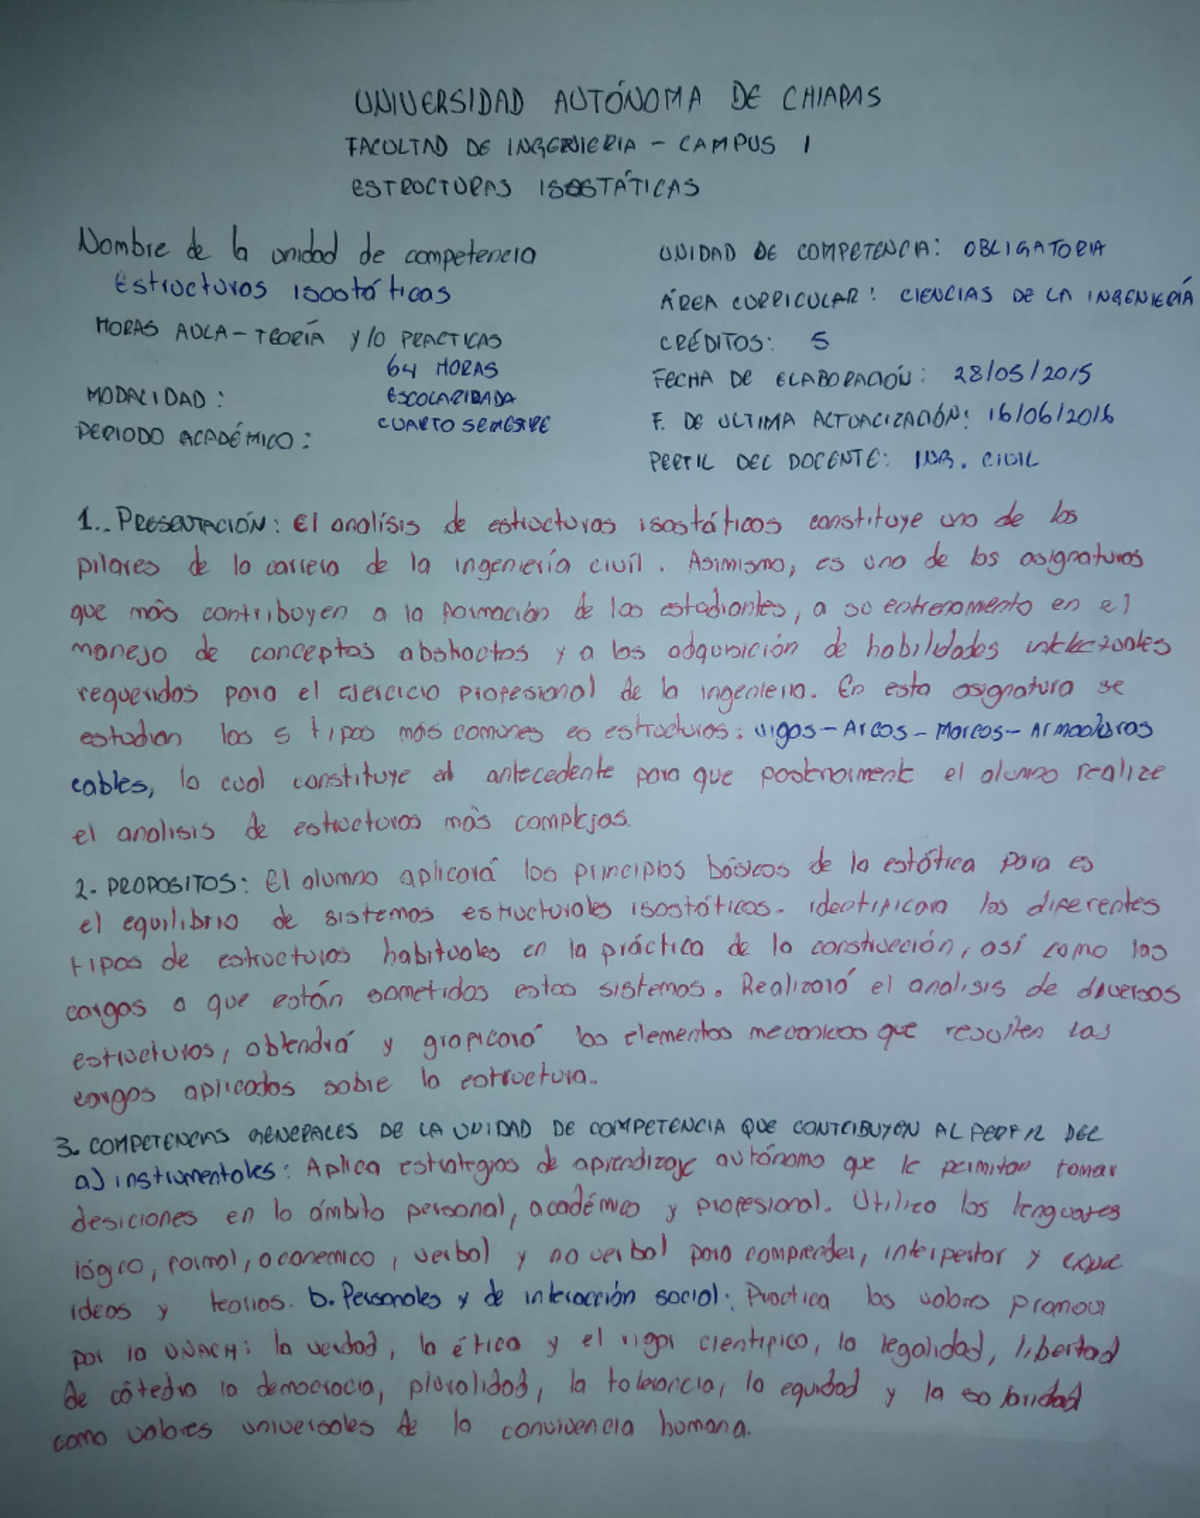 UNIVERSIDAD AUTÓNOMA DE CHIAPAS
FACULTAD DE INGENIERIA - CAMPUS 1
ESTRUCTURAS ISOSTÁTICAS
Nombre de la unidad de competencia
Estructuras isostáticas
HORAS AULA - TEORÍA Y/O PRACTICAS
64 HORAS
MODALIDAD: ESCOLARIZADA
PERIODO ACADÉMICO: CUARTO SEMESTRE
UNIDAD DE COMPETENCIA: OBLIGATORIA
ÁREA CURRICULAR: CIENCIAS DE LA INGENIERÍA
CRÉDITOS: 5
FECHA DE ELABORACIÓN: 28/05/2015
F. DE ULTIMA ACTUALIZACIÓN: 16/06/2016
PERFIL DEL DOCENTE: ING. CIVIL
1.. PRESENTACIÓN: El analísis de estructuras isostáticas constituye uno de los
pilares de la carrera de la ingeniería civil. Asimismo, es una de las asignaturas
que más contribuyen a la formación de los estudiantes, a su entrenamento en el
manejo de conceptos abstractos y a las adquisición de habilidades intelectuales
requeridas para el ejercicio profesional de la ingenieria. En esta asignatura se
estudian los 5 tipos más comunes es estructuras: vigas - Arcos - Marcos - Armaduras
cables, lo cual constituye el antecedente para que posteriorment el alumno realize
el analisis de estructuras más complejas.
2.- PROPOSITOS: El alumno aplicará los principios básicos de la estática para es
el equilibrio de sistemas estructurales isostáticos. identificara los diferentes
tipos de estructuras habituales en la práctica de la construcción, así como las
cargas a que están sometidas estos sistemas. Realizará el analisis de diversas
estructuras, obtendrá y graficará los elementos mecanicos que resulten las
cargas aplicadas sobre la estructura..
3. COMPETENCIAS GENERALES DE LA UNIDAD DE COMPETENCIA QUE CONTRIBUYEN AL PERFIL DEL
a) instrumentales: Aplica estrategias de aprendizaje autónomo que le permitan tomar
desiciones en lo ámbito personal, académico y profesional. Utiliza los lenguajes
lógico, formal, verbal y no verbal para comprender, interpretar y
ideas y teorios. b. Personales y de interacción social: Practica los valores promov
por la UNACH: la verdad, la ética y el rigor cientifico, la legalidad, libertad
de cátedra la democracia, pluralidad, la tolerancia, la equidad y la solaridad
como valores universales de la convivencia humana.